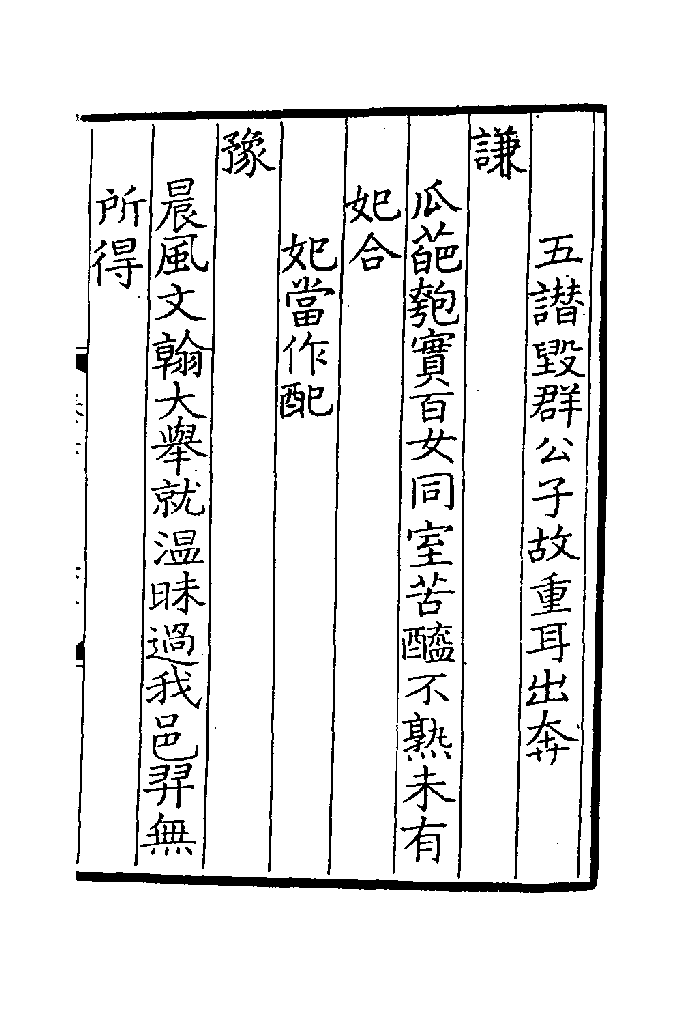 五譖毀群公子故重耳出奔
謙
瓜葩瓠實百女同室苦醯不熟未有
妃合
妃當作配
豫
晨風文翰大舉就温昧過我邑羿無
所得